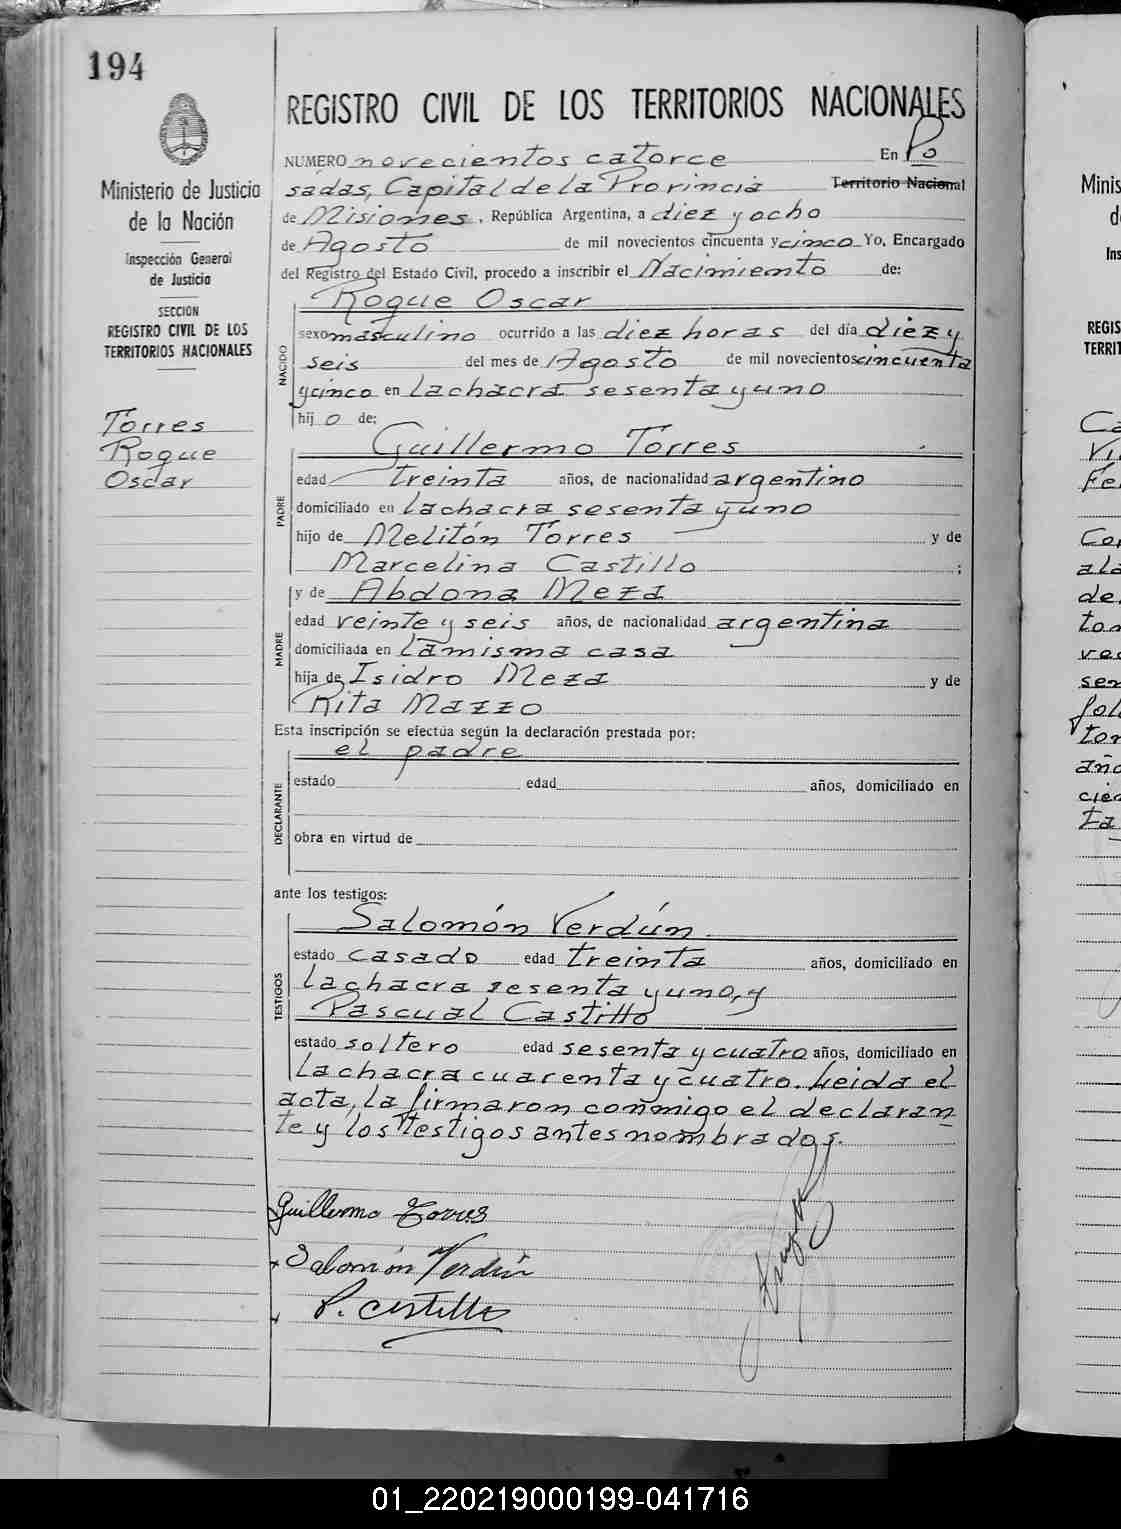 194
REGISTRO CIVIL DE LOS TERRITORIOS NACIONALES
Ministerio de Justicia
de la Nación
Inspección General
de Justicia
SECCIÓN
REGISTRO CIVIL DE LOS
TERRITORIOS NACIONALES
Torres
Roque
Oscar
NUMERO novecientos catorce En Po
sadas, Capital de la Provincia Territorio Nacional
de Misiones, República Argentina, a diez y ocho
de Agosto de mil novecientos cincuenta y cinco Yo, Encargado
del Registro del Estado Civil, procedo a inscribir el Nacimiento de:
NACIDO
Roque Oscar
sexo masculino ocurrido a las diez horas del día diez y
seis del mes de Agosto de mil novecientos cincuenta
y cinco en la chacra sesenta y uno
hij o de:
PADRE
Guillermo Torres
edad treinta años, de nacionalidad argentino
domiciliado en la chacra sesenta y uno
hijo de Melitón Torres y de
Marcelina Castillo ;
MADRE
y de Abdona Meza
edad veinte y seis años, de nacionalidad argentina
domiciliada en la misma casa
hija de Isidro Meza y de
Rita Mazzo
Esta inscripción se efectúa según la declaración prestada por:
DECLARANTE
el padre
estado edad años, domiciliado en
obra en virtud de
ante los testigos:
TESTIGOS
Salomón Verdún
estado casado edad treinta años, domiciliado en
la chacra sesenta y uno, y
Pascual Castillo
estado soltero edad sesenta y cuatro años, domiciliado en
la chacra cuarenta y cuatro. Leida el
acta, la firmaron conmigo el declaran
te y los testigos antes nombrados.
Guillermo Torres
Salomón Verdún
P. Castillo
Minis
d
Ins
REGIS
TERRIT
Ca
Vi
Fe
Co
ala
de
to
ve
se
fol
tor
año
cie
ta
01_220219000199-041716